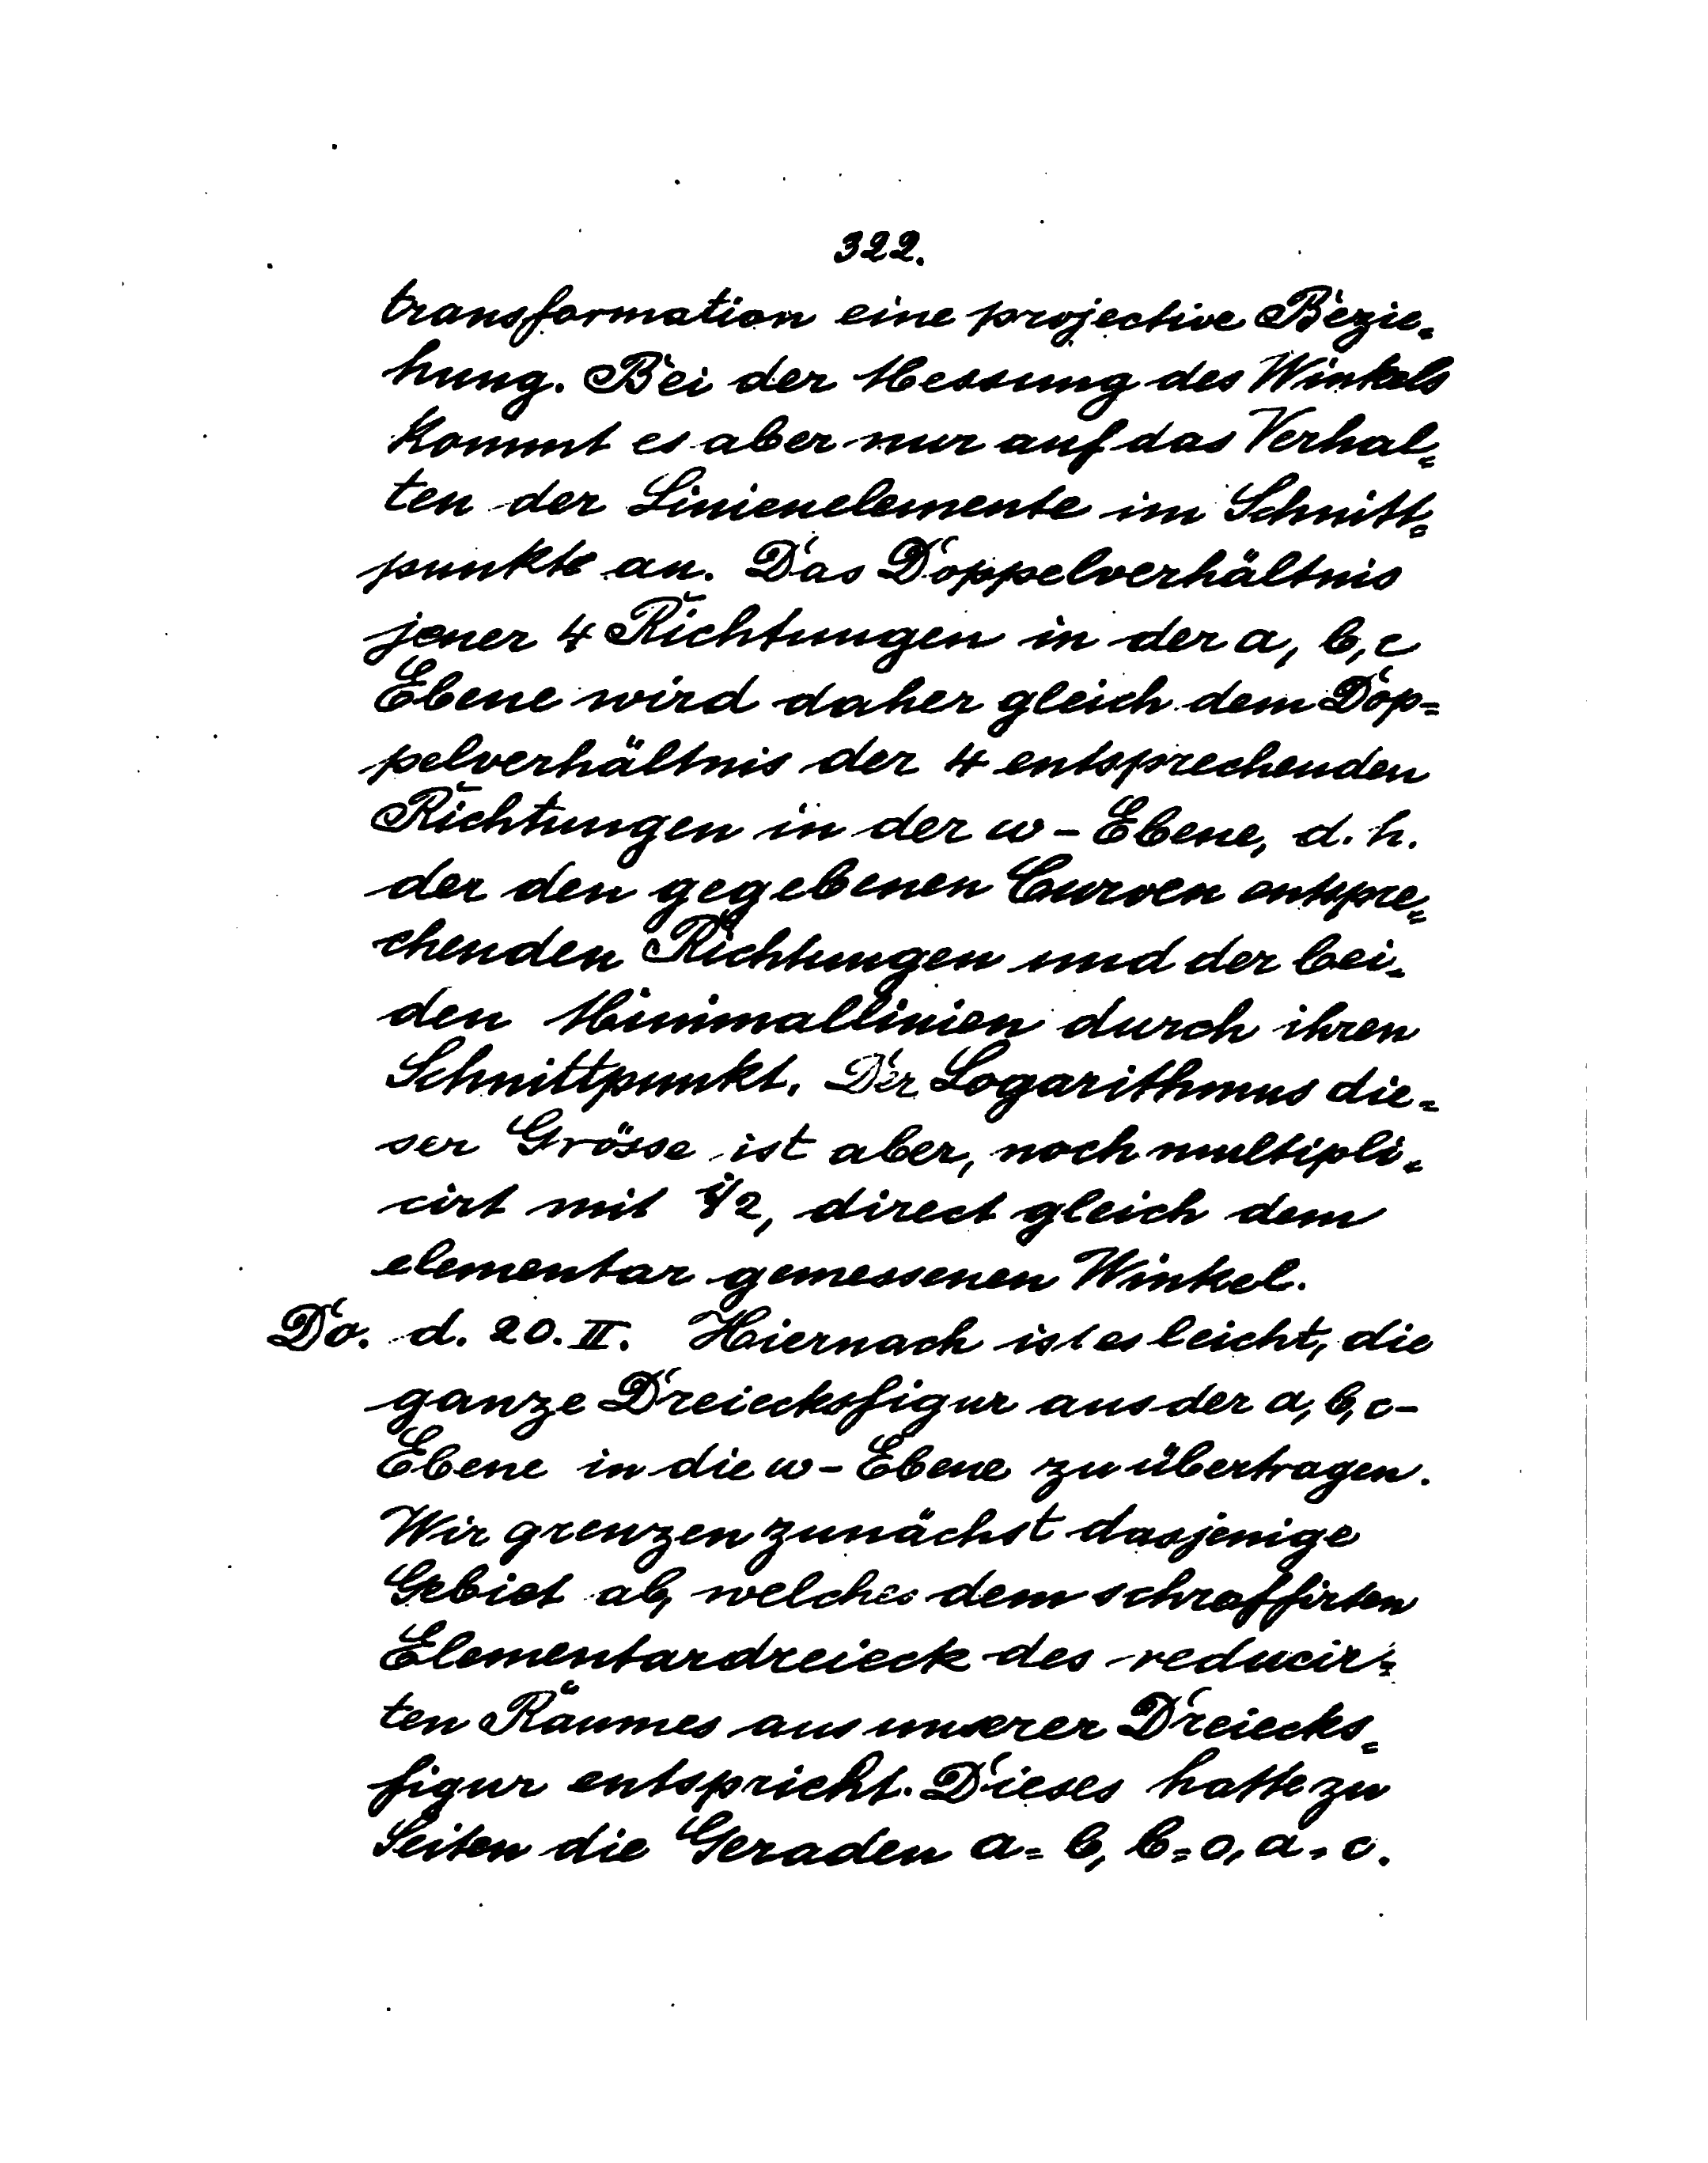 322.
transformation eine projective Bezie-
hung. Bei der Messung des Winkels
kommt es aber nur auf das Verhal-
ten der Linienelemente im Schnitt-
punkte an. Das Doppelverhältnis
jener 4 Richtungen in der a, b, c
Ebene wird daher gleich dem Dop-
pelverhältnis der 4 entsprechenden
Richtungen in der w-Ebene, d. h.
der den gegebenen Curven entspre-
chenden Richtungen und der bei-
den Minimallinien durch ihren
Schnittpunkt. Der Logarithmus die-
ser Grösse ist aber, noch multipli-
cirt mit i/2, direct gleich dem
elementar gemessenen Winkel.
Do. d. 20. II. Hiernach ist es leicht, die
ganze Dreiecksfigur aus der a, b, c-
Ebene in die w-Ebene zu übertragen.
Wir grenzen zunächst dasjenige
Gebiet ab, welches dem schraffirten
Elementardreieck des reducir-
ten Raumes aus unserer Dreiecks-
figur entspricht. Dieses hatte zu
Seiten die Geraden a = b, b = o, a = c.